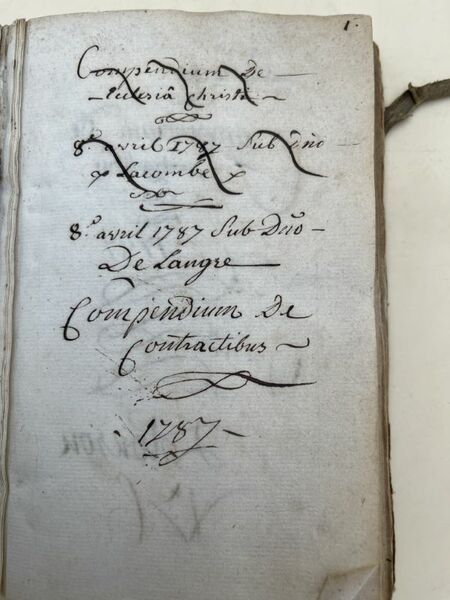 1.
Compendium De
Ecclesiâ Christi
8.º avril 1787 Sub Dño
Lacombe
8.º avril 1787 Sub Dño
De Langre
Compendium De
Contractibus
1787